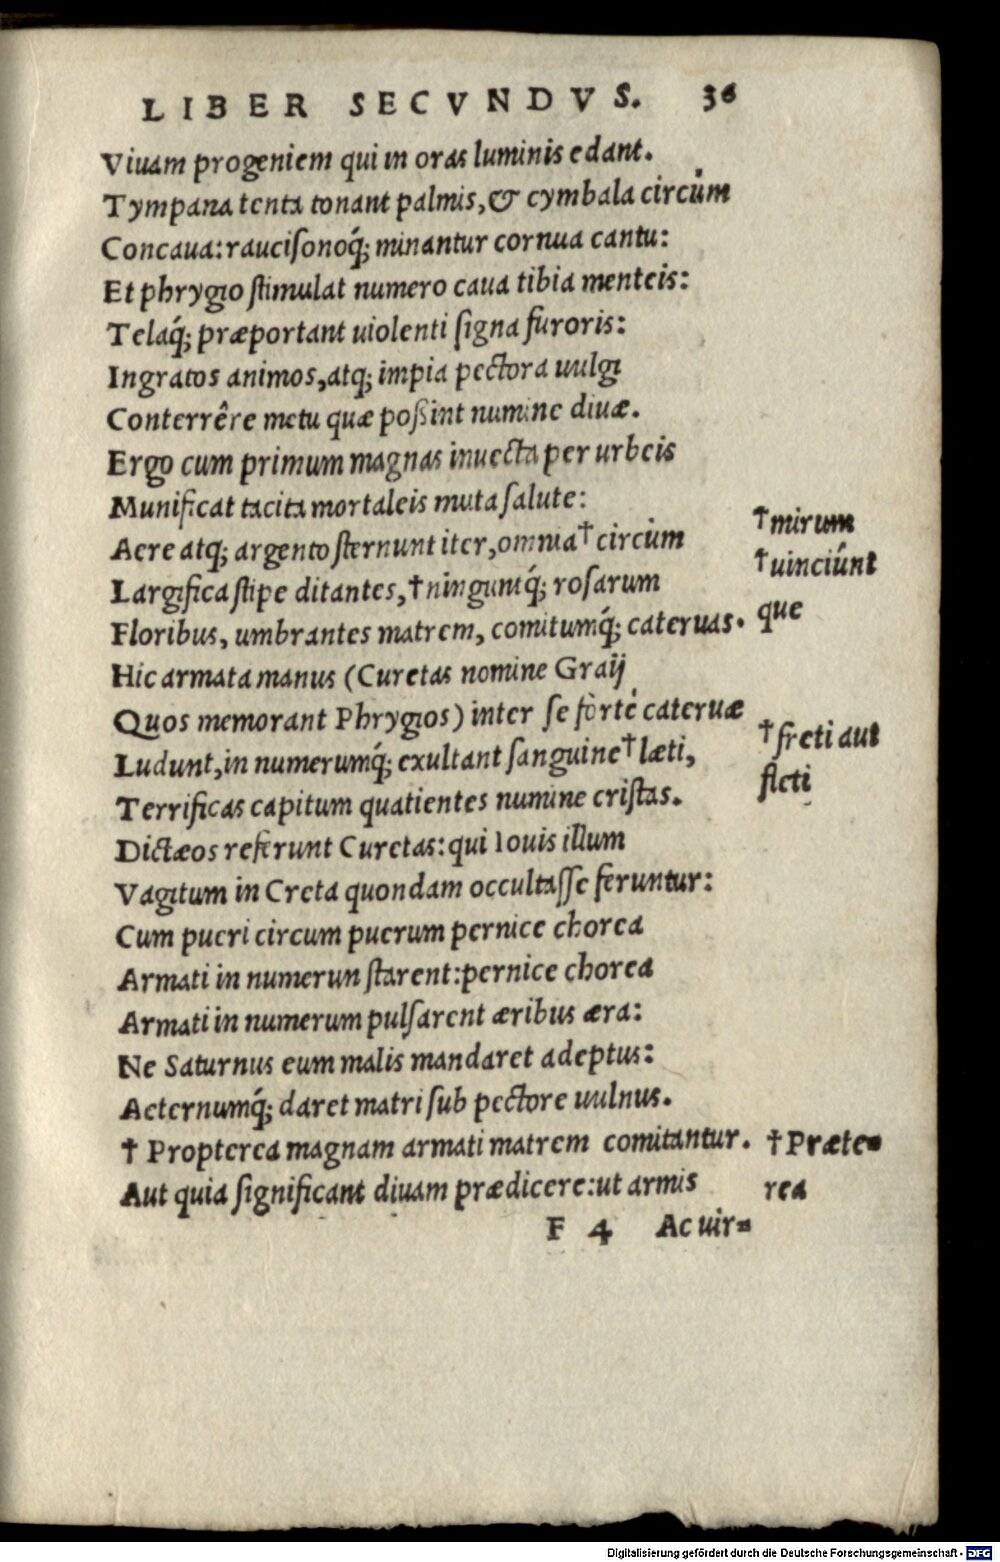 LIBER SECVNDVS. 36
Viuam progeniem qui in oras luminis edant.
Tympana tenta tonant palmis, & cymbala circùm
Concaua: rauciſonoq́; minantur cornua cantu:
Et phrygio ſtimulat numero caua tibia menteis:
Telaq́; præportant uiolenti ſigna furoris:
Ingratos animos, atq; impia pectora uulgi
Conterrêre metu quæ poßint numine diuæ.
Ergo cum primum magnas inuecta per urbeis
Munificat tacita mortaleis muta ſalute:
Aere atq; argento ſternunt iter, omnia † circùm
†mirum
Largifica ſtipe ditantes, † ningunq́; roſarum
†uinciúnt
Floribus, umbrantes matrem, comitumq́; cateruas.
que
Hic armata manus (Curetas nomine Graij
Quos memorant Phrygios) inter ſe fortè cateruæ
Ludunt, in numerumq́; exultant ſanguine † læti,
†freti aut
Terrificas capitum quatientes numine criſtas.
fleti
Dictæos referunt Curetas: qui Iouis illum
Vagitum in Creta quondam occultaſſe feruntur:
Cum pueri circum puerum pernice chorea
Armati in numerun ſtarent: pernice chorea
Armati in numerum pulſarent æribus æra:
Ne Saturnus eum malis mandaret adeptus:
Aeternumq́; daret matri ſub pectore uulnus.
† Propterea magnam armati matrem comitantur.
†Præte=
Aut quia ſignificant diuam prædicere: ut armis
rea
F 4 Ac uir=
Digitalisierung gefördert durch die Deutsche Forschungsgemeinschaft - DFG